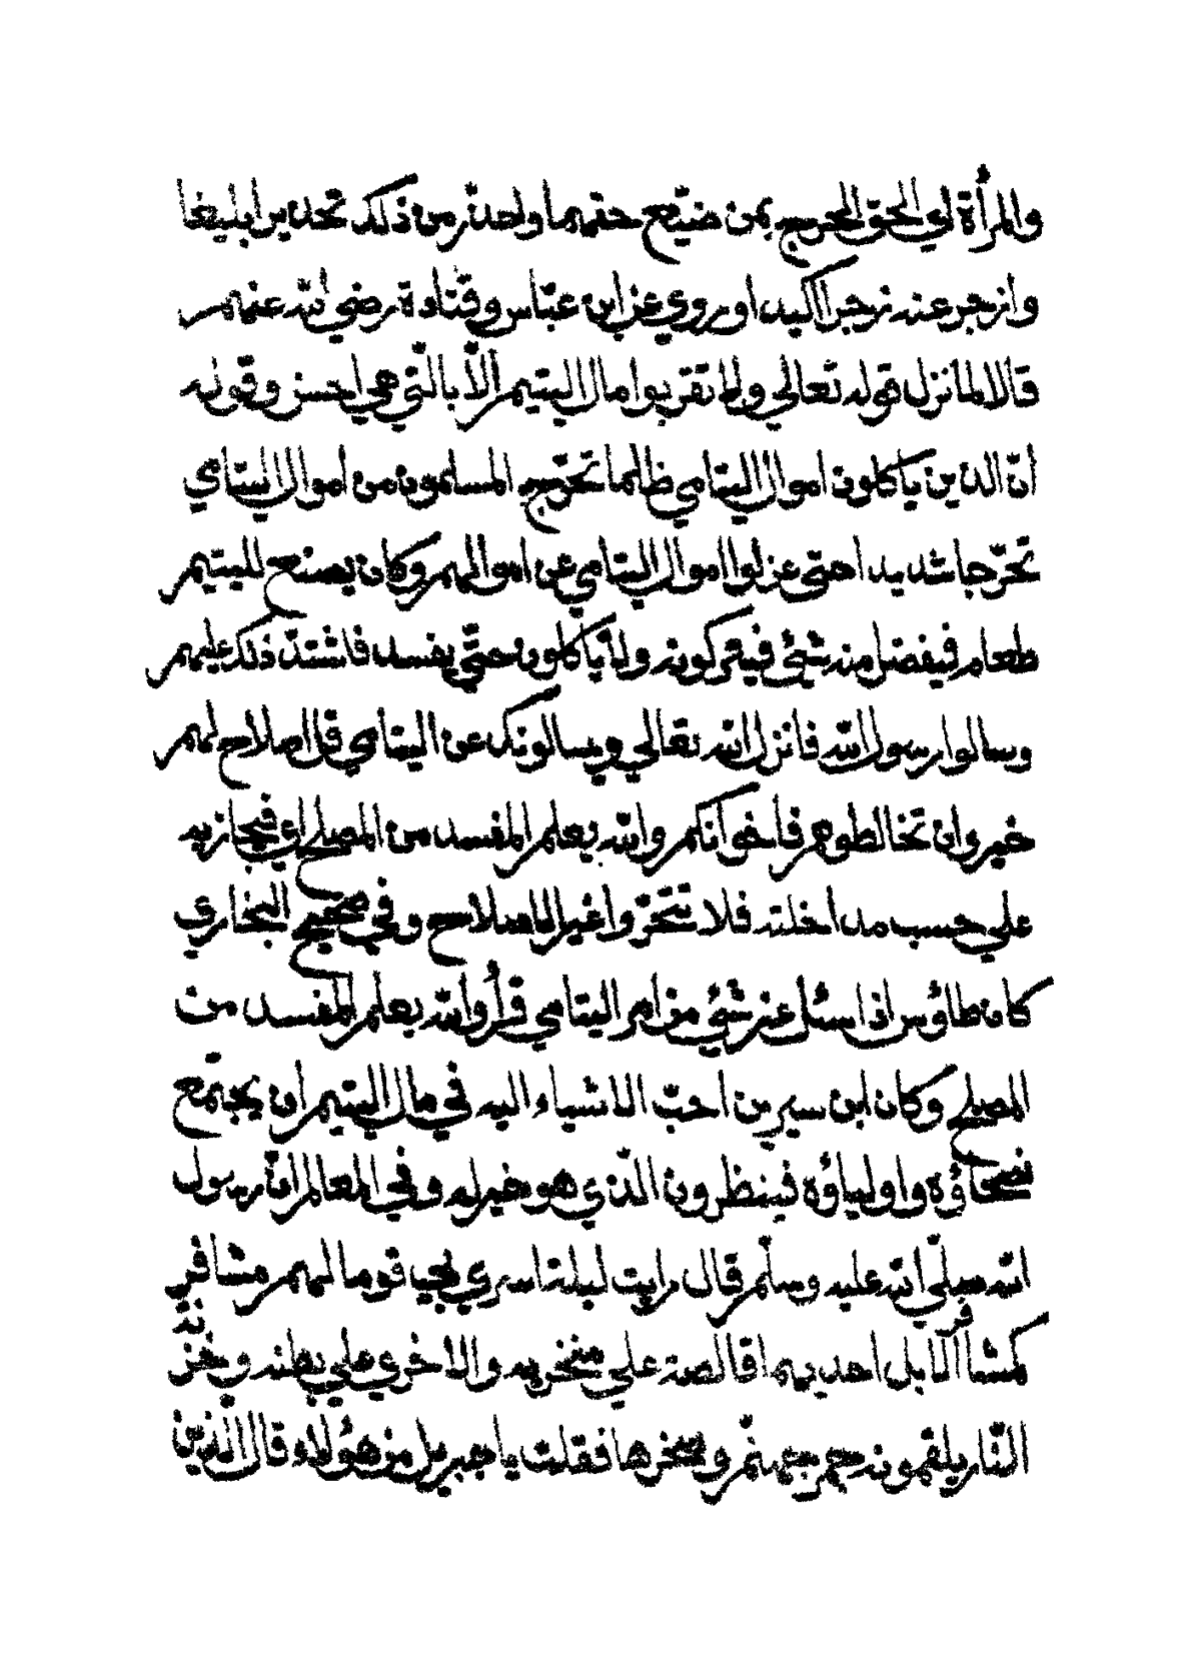 والمرأة اي الحق الحرج بمن ضيّع حقهما واحذّر من ذلك تحذيرا بليغا
وازجر عنه زجرا اكيدا وروي عن ابن عبّاس وقتادة رضي الله عنهم
قالا لما نزل قوله تعالي ولا تقربوا مال اليتيم الّا بالّتي هي احسن وقوله
انّ الذين ياكلون اموال اليتامي ظالما تحرّج المسلمون من أموال اليتامي
تحرّجا شديدا حتي عزلوا اموال اليتامي عن اموالهم وكان يصنع لليتيم
طعام فيفضل منه شئ فيتركونه ولا ياكلون حتّي يفسد فاشتدّ ذلك عليهم
وسالوا رسول الله فانزل الله تعالي ويسالونك عن اليتامي قل اصلاح لهم
خير وان تخالطوهم فأخوانكم والله يعلم المفسد من المصلح اي فيجازيه
علي حسب مداخلته فلا تتحرّوا غير الاصلاح وفي صحيح البخاري
كان طاؤس اذا سئل عن شئ من امر اليتامي قرأ والله يعلم المفسد من
المصلح وكان ابن سيرين احبّ الاشياء اليه في مال اليتيم ان يجتمع
نصحاؤه واولياؤه فينظرون الّذي هو خير له وفي المعالم انّ رسول
الله صلّي الله عليه وسلّم قال رايت ليلة اسري بي قوما لهم مشافر
كمشافر الابل احديهما قالصة علي منخريه والاخري علي بطنه وخزنة
النّار يلقمونه جمر جهنّم وصخرها فقلت يا جبريل من هؤلاء قال الّذين